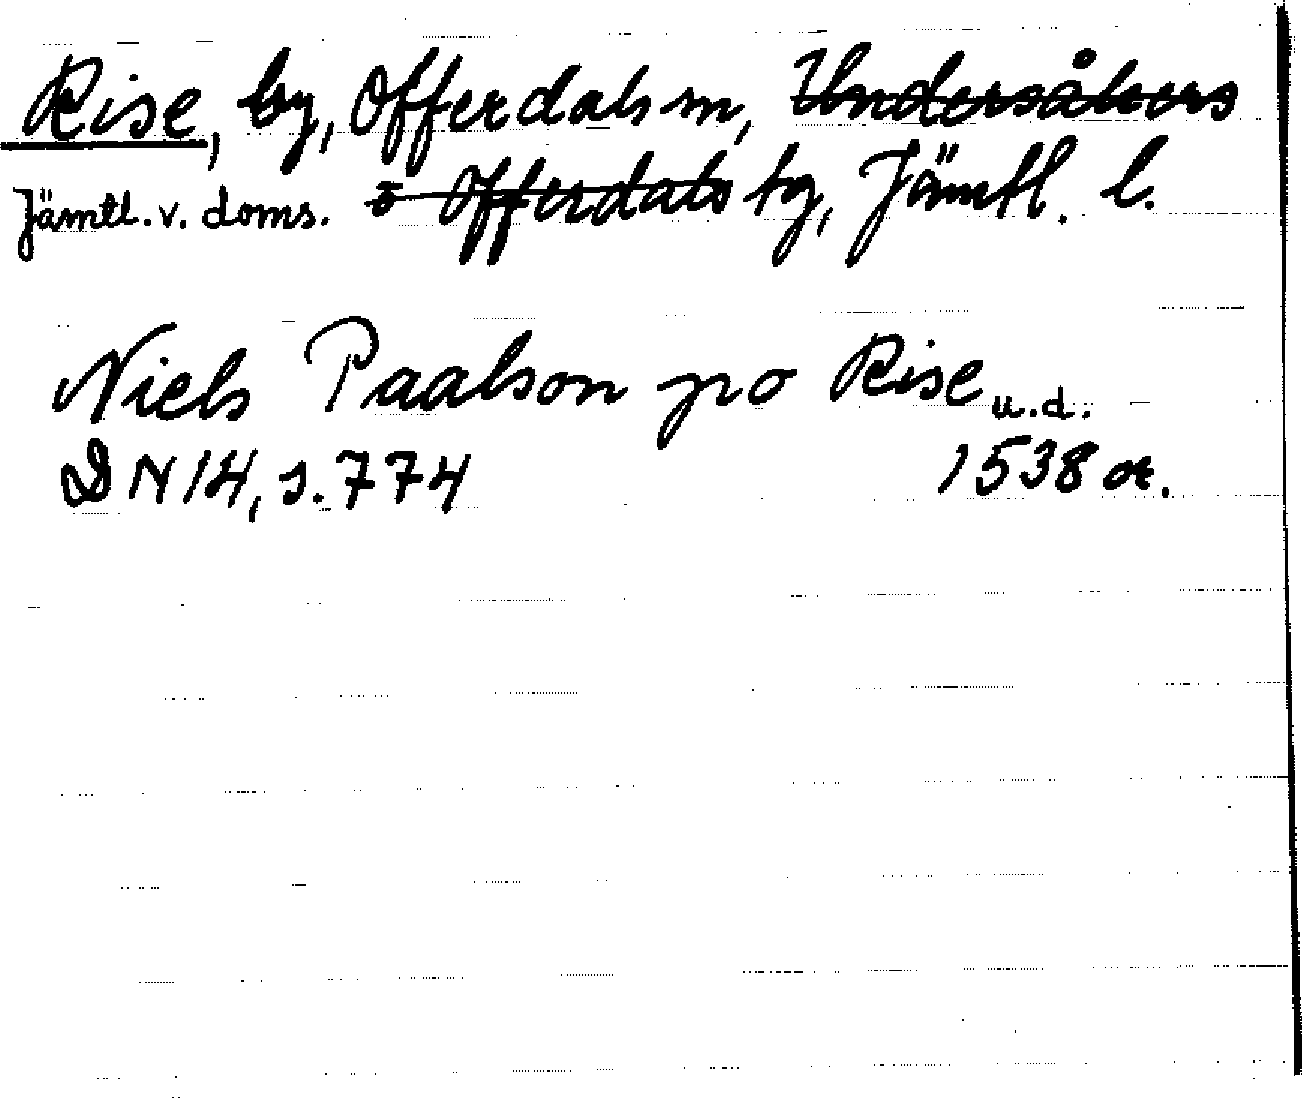 Rise, by, Offerdals sn, Undersåkers
Jämtl. v. doms. o Offerdals tg, Jämtl. l.
Niels Paalson po Rise u.d.
DN 14, s. 774 1538 or.